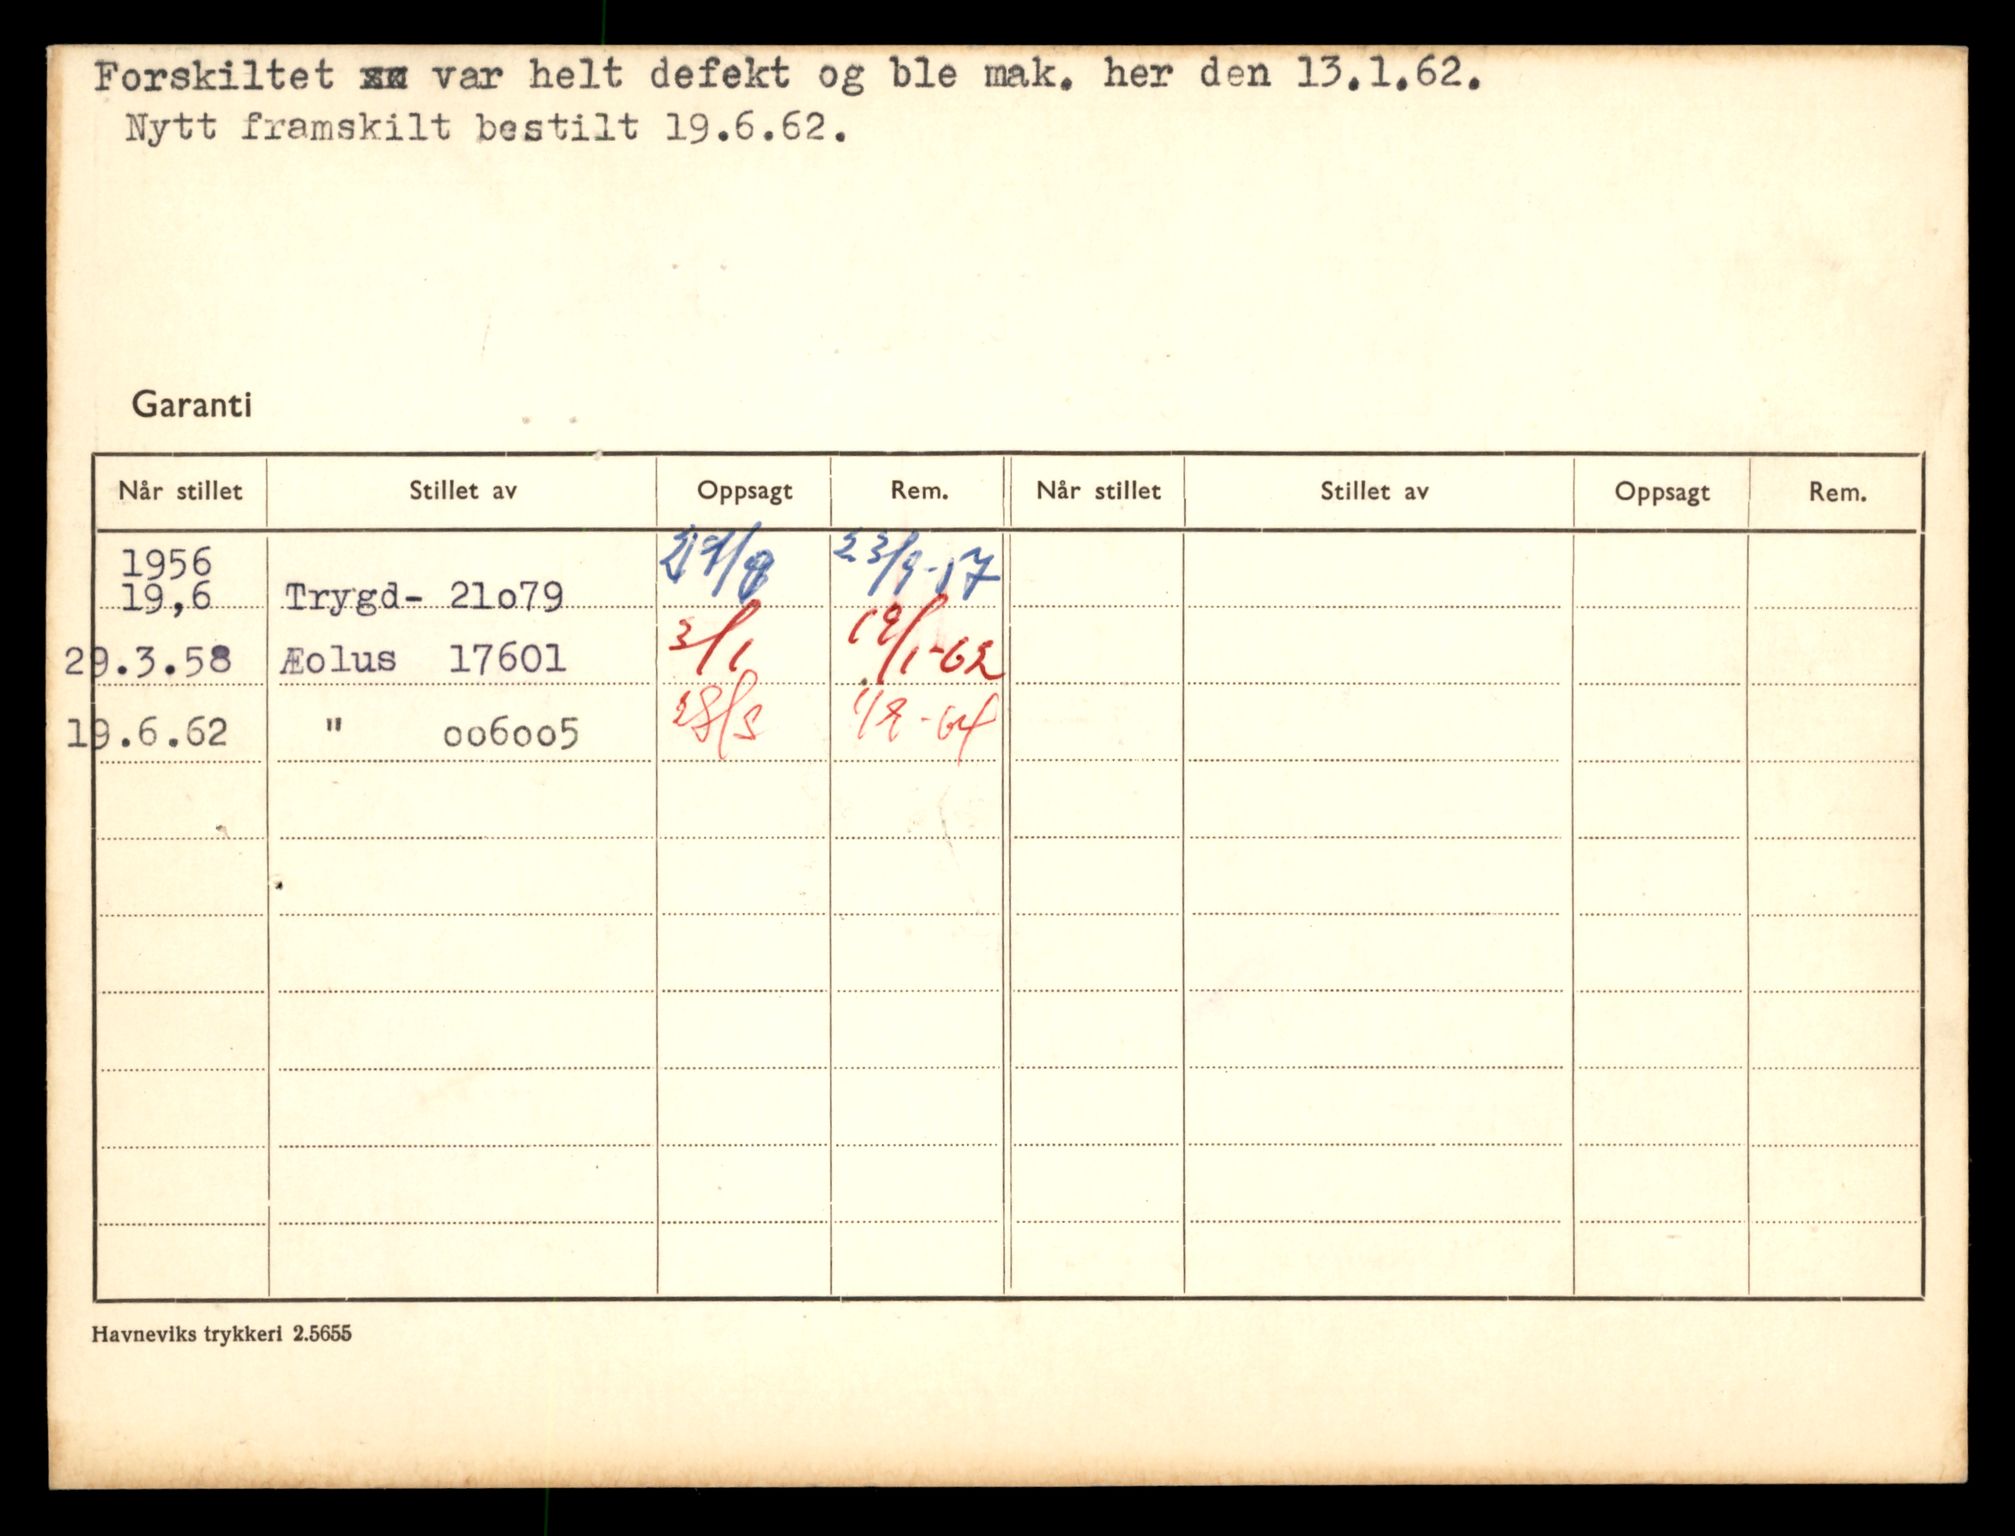 Forskiltet var helt defekt og ble mak. her den 13.1.62.
Nytt framskilt bestilt 19.6.62.
Garanti
Når stillet Stillet av Oppsagt Rem. Når stillet Stillet av Oppsagt Rem.
1956
19,6 Trygd- 21o79 23/9-57
29.3.58 Æolus 17601 3/1 19/1-62
19.6.62 " oo6oo5 28/8
Havneviks trykkeri 2.5655